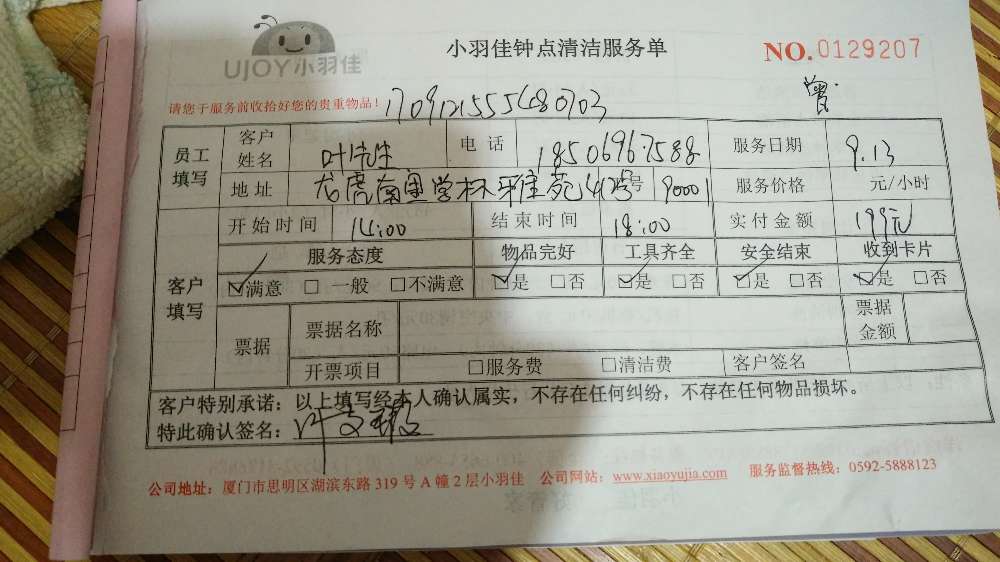 UJOY小羽佳
小羽佳钟点清洁服务单
NO.0129207
请您于服务前收拾好您的贵重物品！
曾
员工填写
客户姓名
叶先生
电话
18506967588
服务日期
9.13
地址
龙虎南里学林雅苑
号
服务价格
元/小时
客户填写
开始时间
14:00
结束时间
18:00
实付金额
199元
服务态度
物品完好
工具齐全
安全结束
收到卡片
☑满意 □一般 □不满意
☑是 □否
☑是 □否
☑是 □否
☑是 □否
票据
票据名称
票据金额
开票项目
□服务费 □清洁费
客户签名
客户特别承诺：以上填写经本人确认属实，不存在任何纠纷，不存在任何物品损坏。
特此确认签名：
公司地址：厦门市思明区湖滨东路319号A幢2层小羽佳 公司网站：www.xiaoyujia.com 服务监督热线：0592-5888123